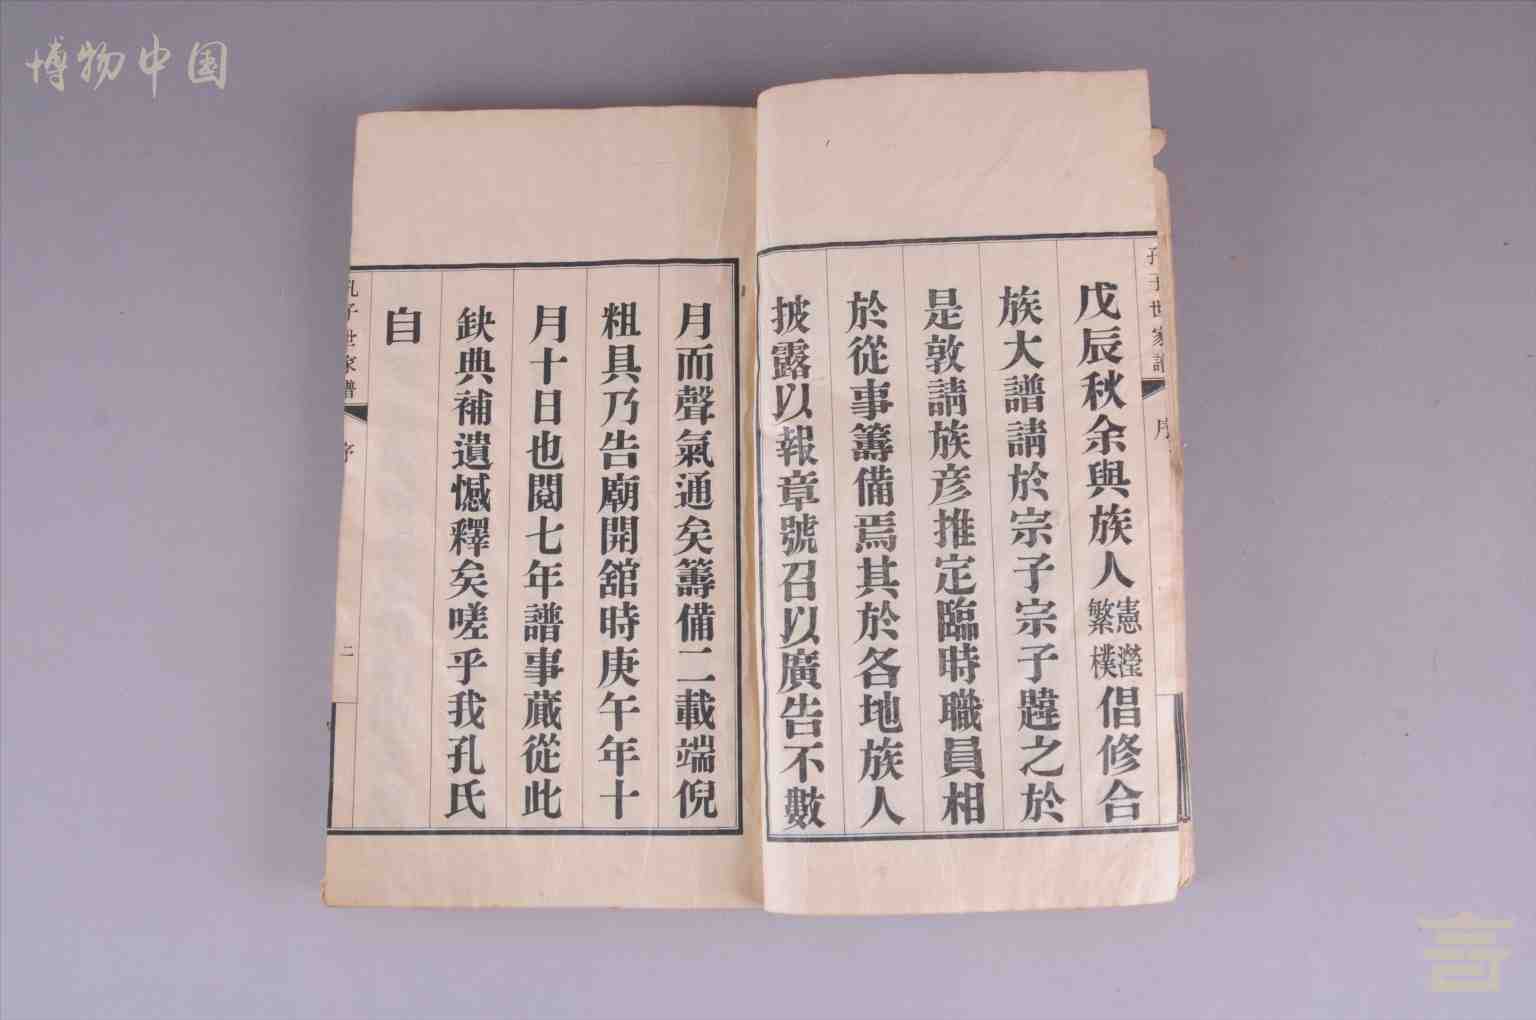 博物中国
孔子世家譜
序
戊辰秋余與族人憲瀅繁樸倡修合
族大譜請於宗子宗子韙之於
是敦請族彦推定臨時職員相
於從事籌備焉其於各地族人
披露以報章號召以廣告不數
月而聲氣通矣籌備二載端倪
粗具乃告廟開舘時庚午年十
月十日也閱七年譜事蕆從此
缺典補遺憾釋矣嗟乎我孔氏
自
孔子世家譜
序
二